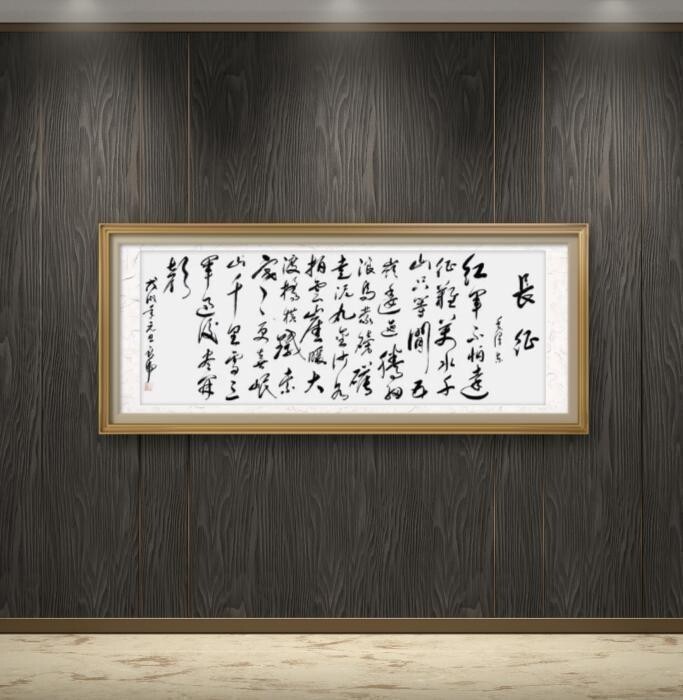 長征
毛澤東
红軍不怕遠
征難萬水千
山只等閒五
嶺逶迤騰細
浪烏蒙磅礴
走泥丸金沙水
拍雲崖暖大
渡橋橫鐵索
寒更喜岷
山千里雪三
軍過後盡開
顏
元旦